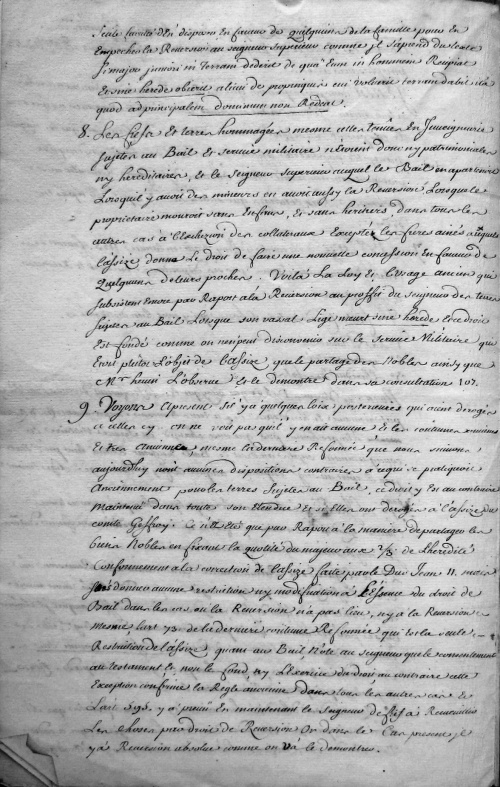 Seale faculté d'En disposer En faveur de quelquun de la famille pour En
Empecher la Reversion au seigneur superieur comme jl s'aprend du texte
Si major juniori in terram dederit de qua Eum in hominem Recipiat
Et sine herede obierit alicui de propinquis cui voluerit terram dabit ita
quod ad principalem dominum non Redeat.
8. Les fiefs Et terres hommagées mesme celles tenües En Juveigneurie
sujetes au Bail Et service militaire n'Etoient donc ny patrimoniales
ny hereditaires, et le seigneur superieur auquel le Bail en apartenoit
Lorsquil y avoit des mineurs en avoit aussy la Reversion Lorsque le
proprietaire mouroit sans Enfans, Et sans heritiers, dans tous les
autres cas à l'Exclusion des collateraux Excepter les freres ainés auxquels
l'assize donne Le droit de faire une nouvelle concession En faveur de
quelquun de leurs proches. Voila La Loy et L'usage ancien qui
subsistent Encore par Raport a la Reversion au proffit du seigneur des terres
sujetes au Bail Lorsque son vassal Lige meurt sine herede et ce droit
Est fondé comme on ne peut disconvenir sur le service Militaire qui
Etoit plutot L'objet de l'assize que le partage des Nobles ainsy que
M.re hevin L'observe Et le demontre dans sa consultation 107.
9. Voyons apresent s'il y a quelques loix posterieures qui aient derogé
a celles cy. on ne voit pas qu'il y en ait aucune et les coutumes anciennes
Et tres anciennes, mesme la derniere Reformée que nous suivons
aujourdhuy n'ont aucunes dispositions contraires a ce qui se pratiquoit
anciennement pour les terres sujetes au Bail, ce droit y Est au contraire
maintenu dans toute son Etendue et si Elles ont derogé a l'assize du
comte Geffroy. Ce n'a Eté que par Raport à la maniere de partager les
biens Nobles en fixant la quotité du majeur aux 2/3 de L'heredité
Conformement a la correction de l'assize faite par le Duc Jean II. mais
sans donner aucune restriction ny modification a L'Essence du droit de
Bail dans les cas ou la Reversion n'a pas lieu, ny a la Reversion
mesme l'art 73 de la derniere coutume Reformée qui est la seule
Restriction de l'assize, quant au Bail, n'ote au seigneur que le consentement
au testament et non le fond, ny L'Exercice du droit au contraire cette
Exception confirme la Regle ancienne dans tous les autres cas Et
L'art 595. y a precis en maintenant le seigneur de fief a Recueillir
Les choses par droit de Reversion Or dans le Cas present jl
y a Reversion absolue comme on va le demontrer.